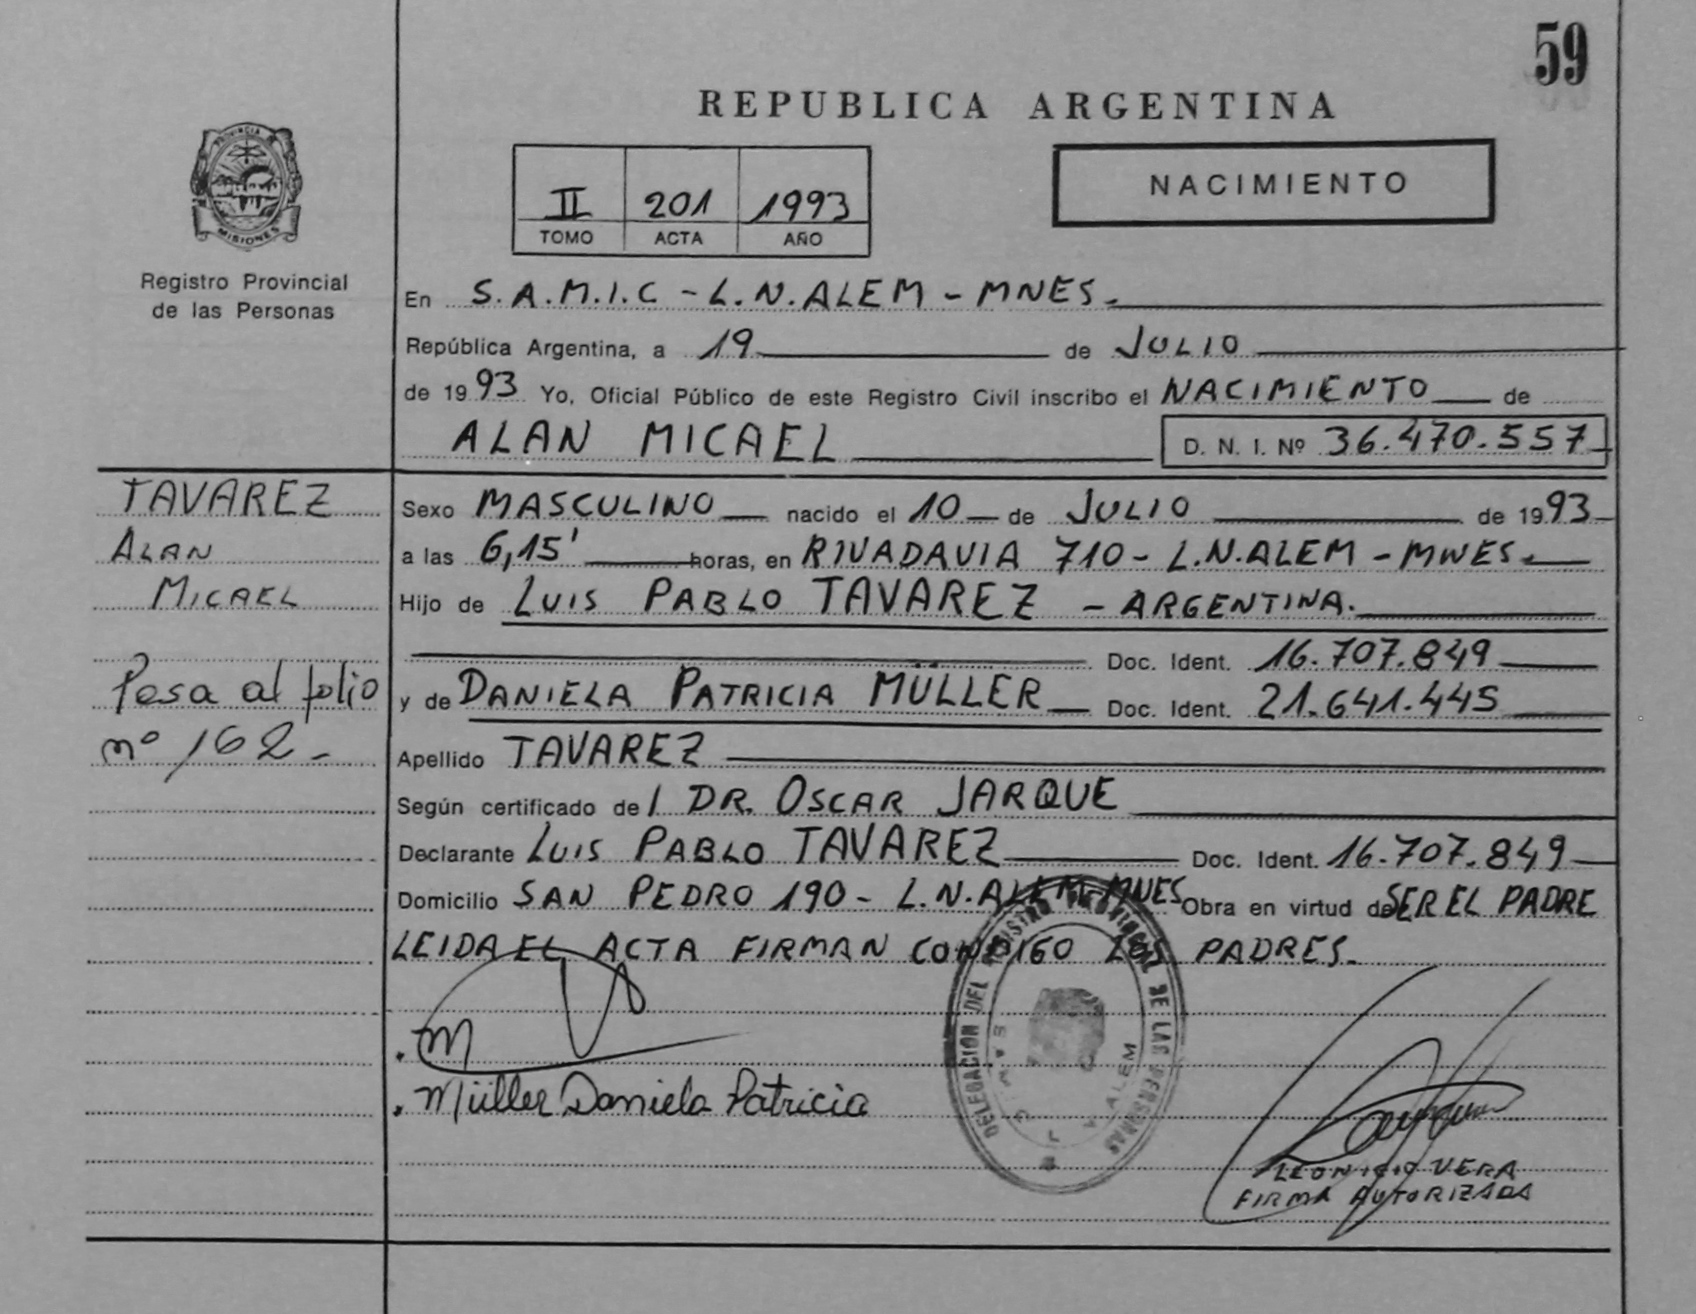 59
REPUBLICA ARGENTINA
PROVINCIA DE
MISIONES
Registro Provincial
de las Personas
II 201 1993
TOMO ACTA AÑO
NACIMIENTO
En S.A.M.I.C - L.N.ALEM - MNES.
República Argentina, a 19 de JULIO
de 1993 Yo, Oficial Público de este Registro Civil inscribo el NACIMIENTO de
ALAN MICAEL D. N. I. Nº 36.470.557
TAVAREZ
ALAN
MICAEL
Pasa al folio
nº 162 -
Sexo MASCULINO nacido el 10 de JULIO de 1993
a las 6,15' horas, en RIVADAVIA 710 - L.N.ALEM - MNES.
Hijo de LUIS PABLO TAVAREZ - ARGENTINA.
Doc. Ident. 16.707.849
y de DANIELA PATRICIA MÜLLER Doc. Ident. 21.641.445
Apellido TAVAREZ
Según certificado de l DR. OSCAR JARQUE
Declarante LUIS PABLO TAVAREZ Doc. Ident. 16.707.849
Domicilio SAN PEDRO 190 - L.N.ALEM-MNES Obra en virtud de SER EL PADRE
LEIDA EL ACTA FIRMAN CONMIGO LOS PADRES.
Müller Daniela Patricia
DELEGACION DEL REGISTRO PROVINCIAL DE LAS PERSONAS
ALEM
VERA
FIRMA AUTORIZADA